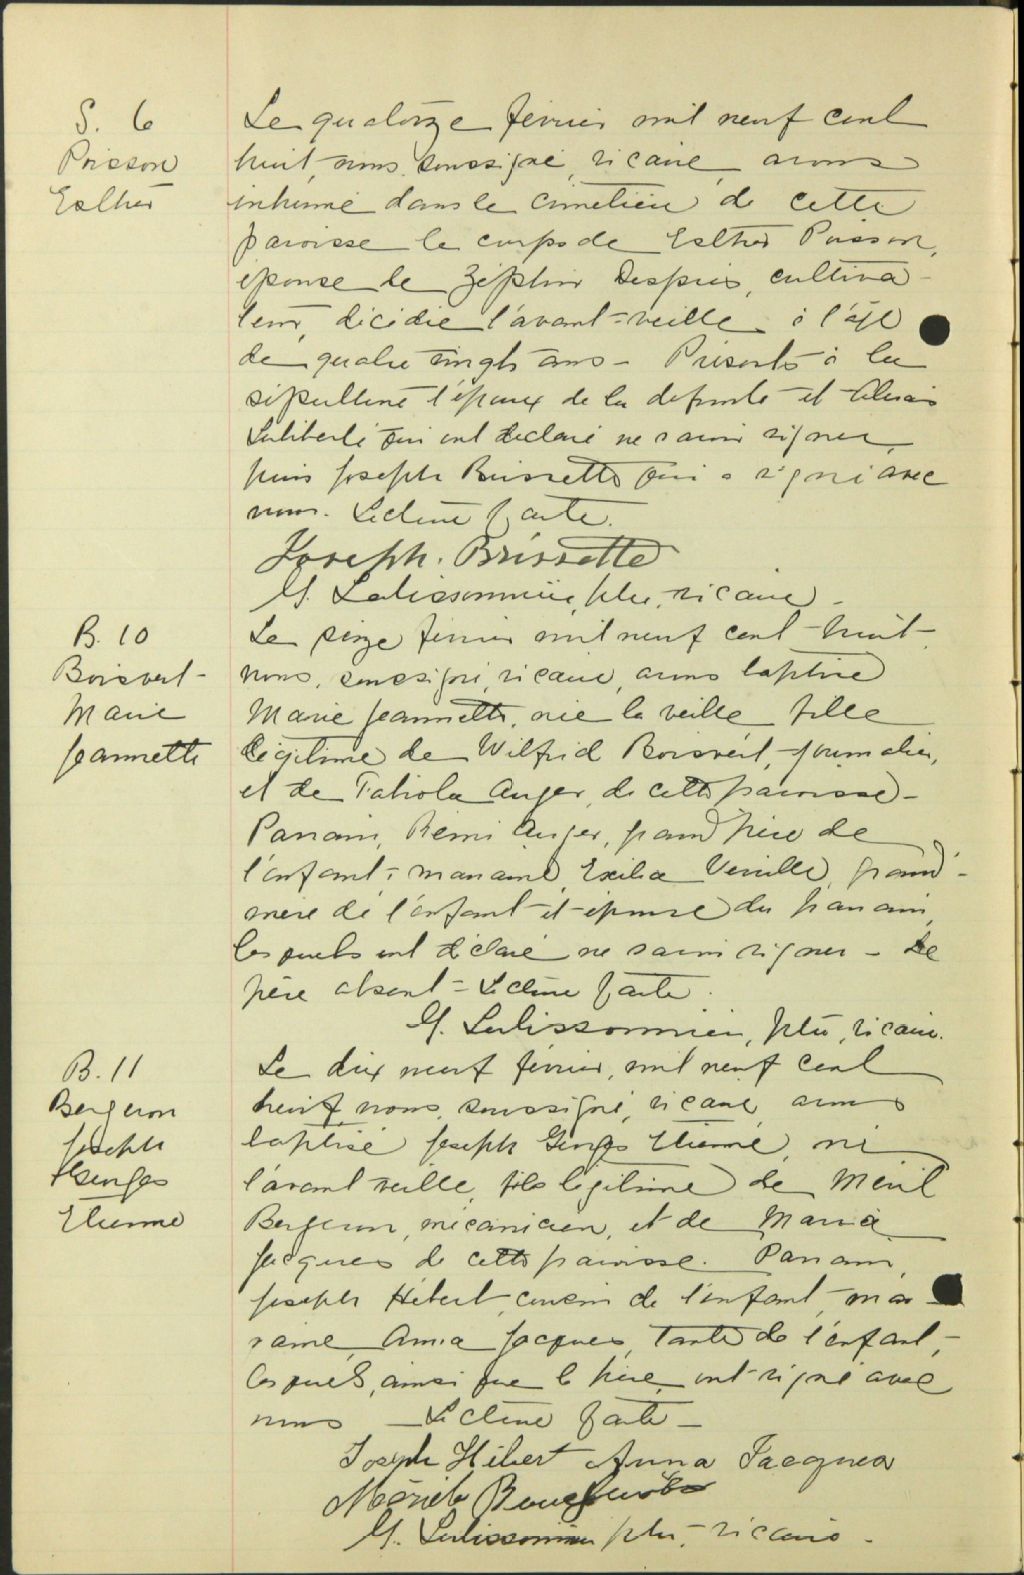 S. 6
Poisson
Esther
Le quatorze février mil neuf cent
huit, nous, soussigné, vicaire, avons
inhumé dans le cimetière de cette
paroisse le corps de Esther Poisson,
épouse de Zéphir Despins, cultiva-
teur, décédée l'avant-veille à l'âge
de quatre vingts ans - Présents à la
sépulture l'époux de la défunte et
Laliberté qui ont déclaré ne savoir signer
puis Joseph Brissette qui a signé avec
nous. Lecture faite.
Joseph. Brissette
G. Lalissonnière, ptre, vicaire -
B. 10
Boisvert -
Marie
Jeannette
Le seize février mil neuf cent huit
nous, soussigné, vicaire, avons baptisé
Marie Jeannette, née la veille fille
légitime de Wilfrid Boisvert, journalier,
et de Fabiola Auger, de cette paroisse -
Parrain, Rémi Auger, grand père de
l'enfant, marraine, Exilia Verville, grand-
mère de l'enfant et épouse du parrain,
lesquels ont déclaré ne savoir signer - Le
père absent = Lecture faite.
G. Lalissonnière, ptre, vicaire.
B. 11
Bergeron
Joseph
Georges
Etienne
Le dix neuf février, mil neuf cent
huit, nous, soussigné, vicaire, avons
baptisé Joseph Georges Etienne, né
l'avant veille, fils légitime de Méril
Bergeron, mécanicien, et de Maria
Jacques de cette paroisse. Parrain,
Joseph Hébert, cousin de l'enfant, mar-
raine, Anna Jacques, tante de l'enfant, -
lesquels, ainsi que le père, ont signé avec
nous - Lecture faite -
Joseph Hébert Anna Jacques
Bergeron
G. Lalissonnière ptre, vicaire.